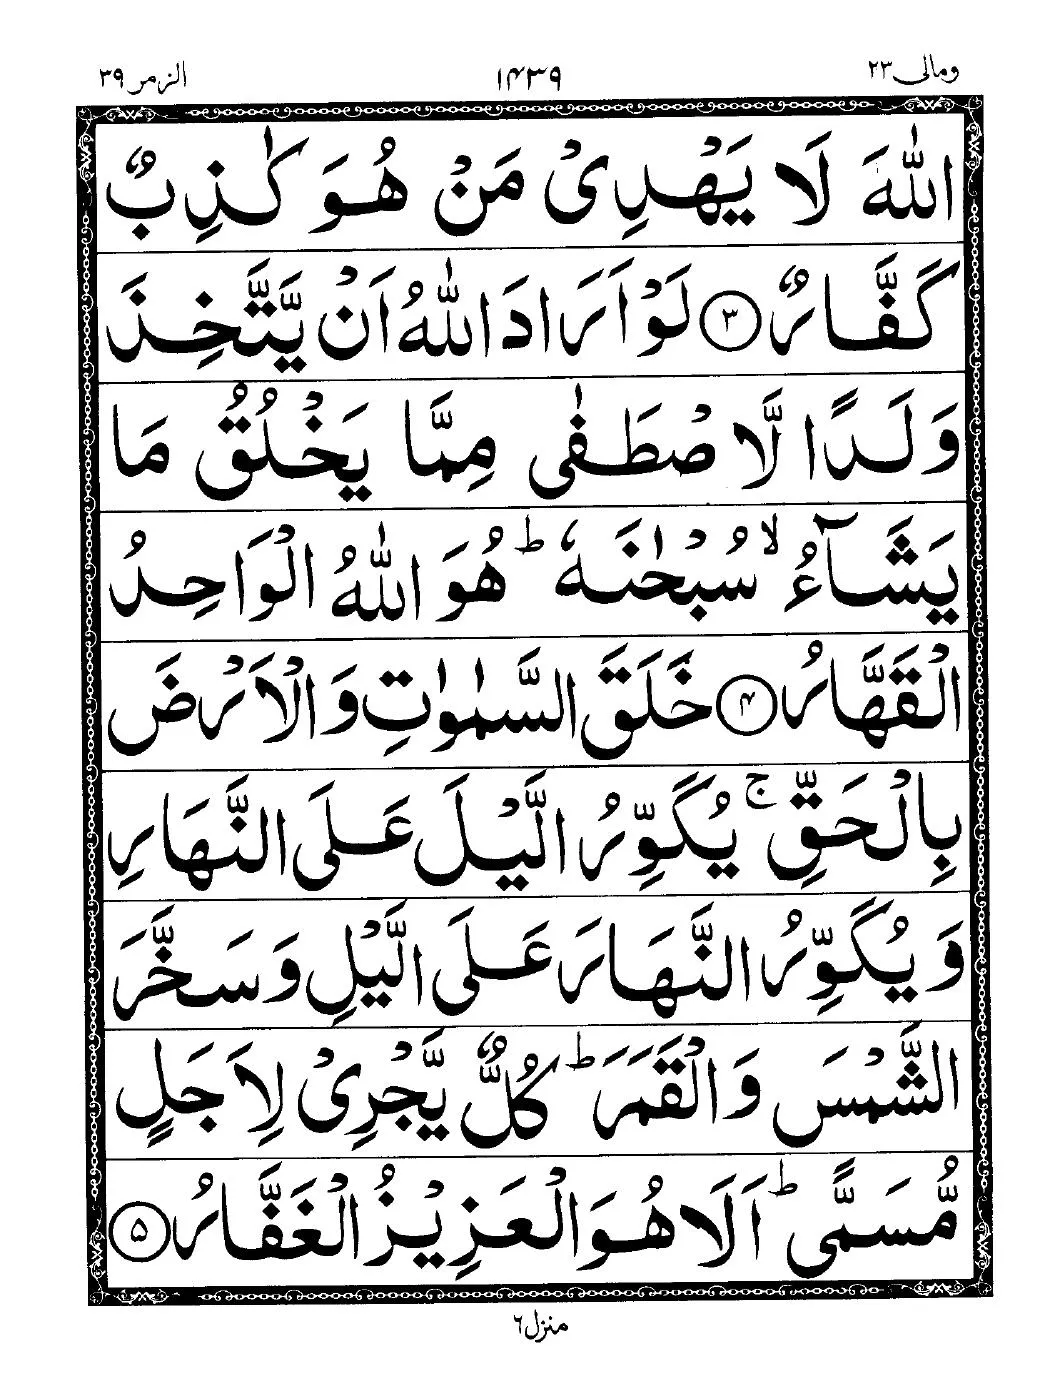 ومالی ۲۳
۱۴۳۹
الزمر ۳۹
اللّٰهَ لَا يَهْدِىْ مَنْ هُوَ كٰذِبٌ
كَفَّارٌ ۝۳ لَوْ اَرَادَ اللّٰهُ اَنْ يَّتَّخِذَ
وَلَدًا لَّاصْطَفٰى مِمَّا يَخْلُقُ مَا
يَشَآءُ ۙ سُبْحٰنَهٗ ؕ هُوَ اللّٰهُ الْوَاحِدُ
الْقَهَّارُ ۝۴ خَلَقَ السَّمٰوٰتِ وَالْاَرْضَ
بِالْحَقِّ ۚ يُكَوِّرُ الَّيْلَ عَلَى النَّهَارِ
وَيُكَوِّرُ النَّهَارَ عَلَى الَّيْلِ وَسَخَّرَ
الشَّمْسَ وَالْقَمَرَ ؕ كُلٌّ يَّجْرِىْ لِاَجَلٍ
مُّسَمًّى ؕ اَلَا هُوَ الْعَزِيْزُ الْغَفَّارُ ۝۵
منزل ۶